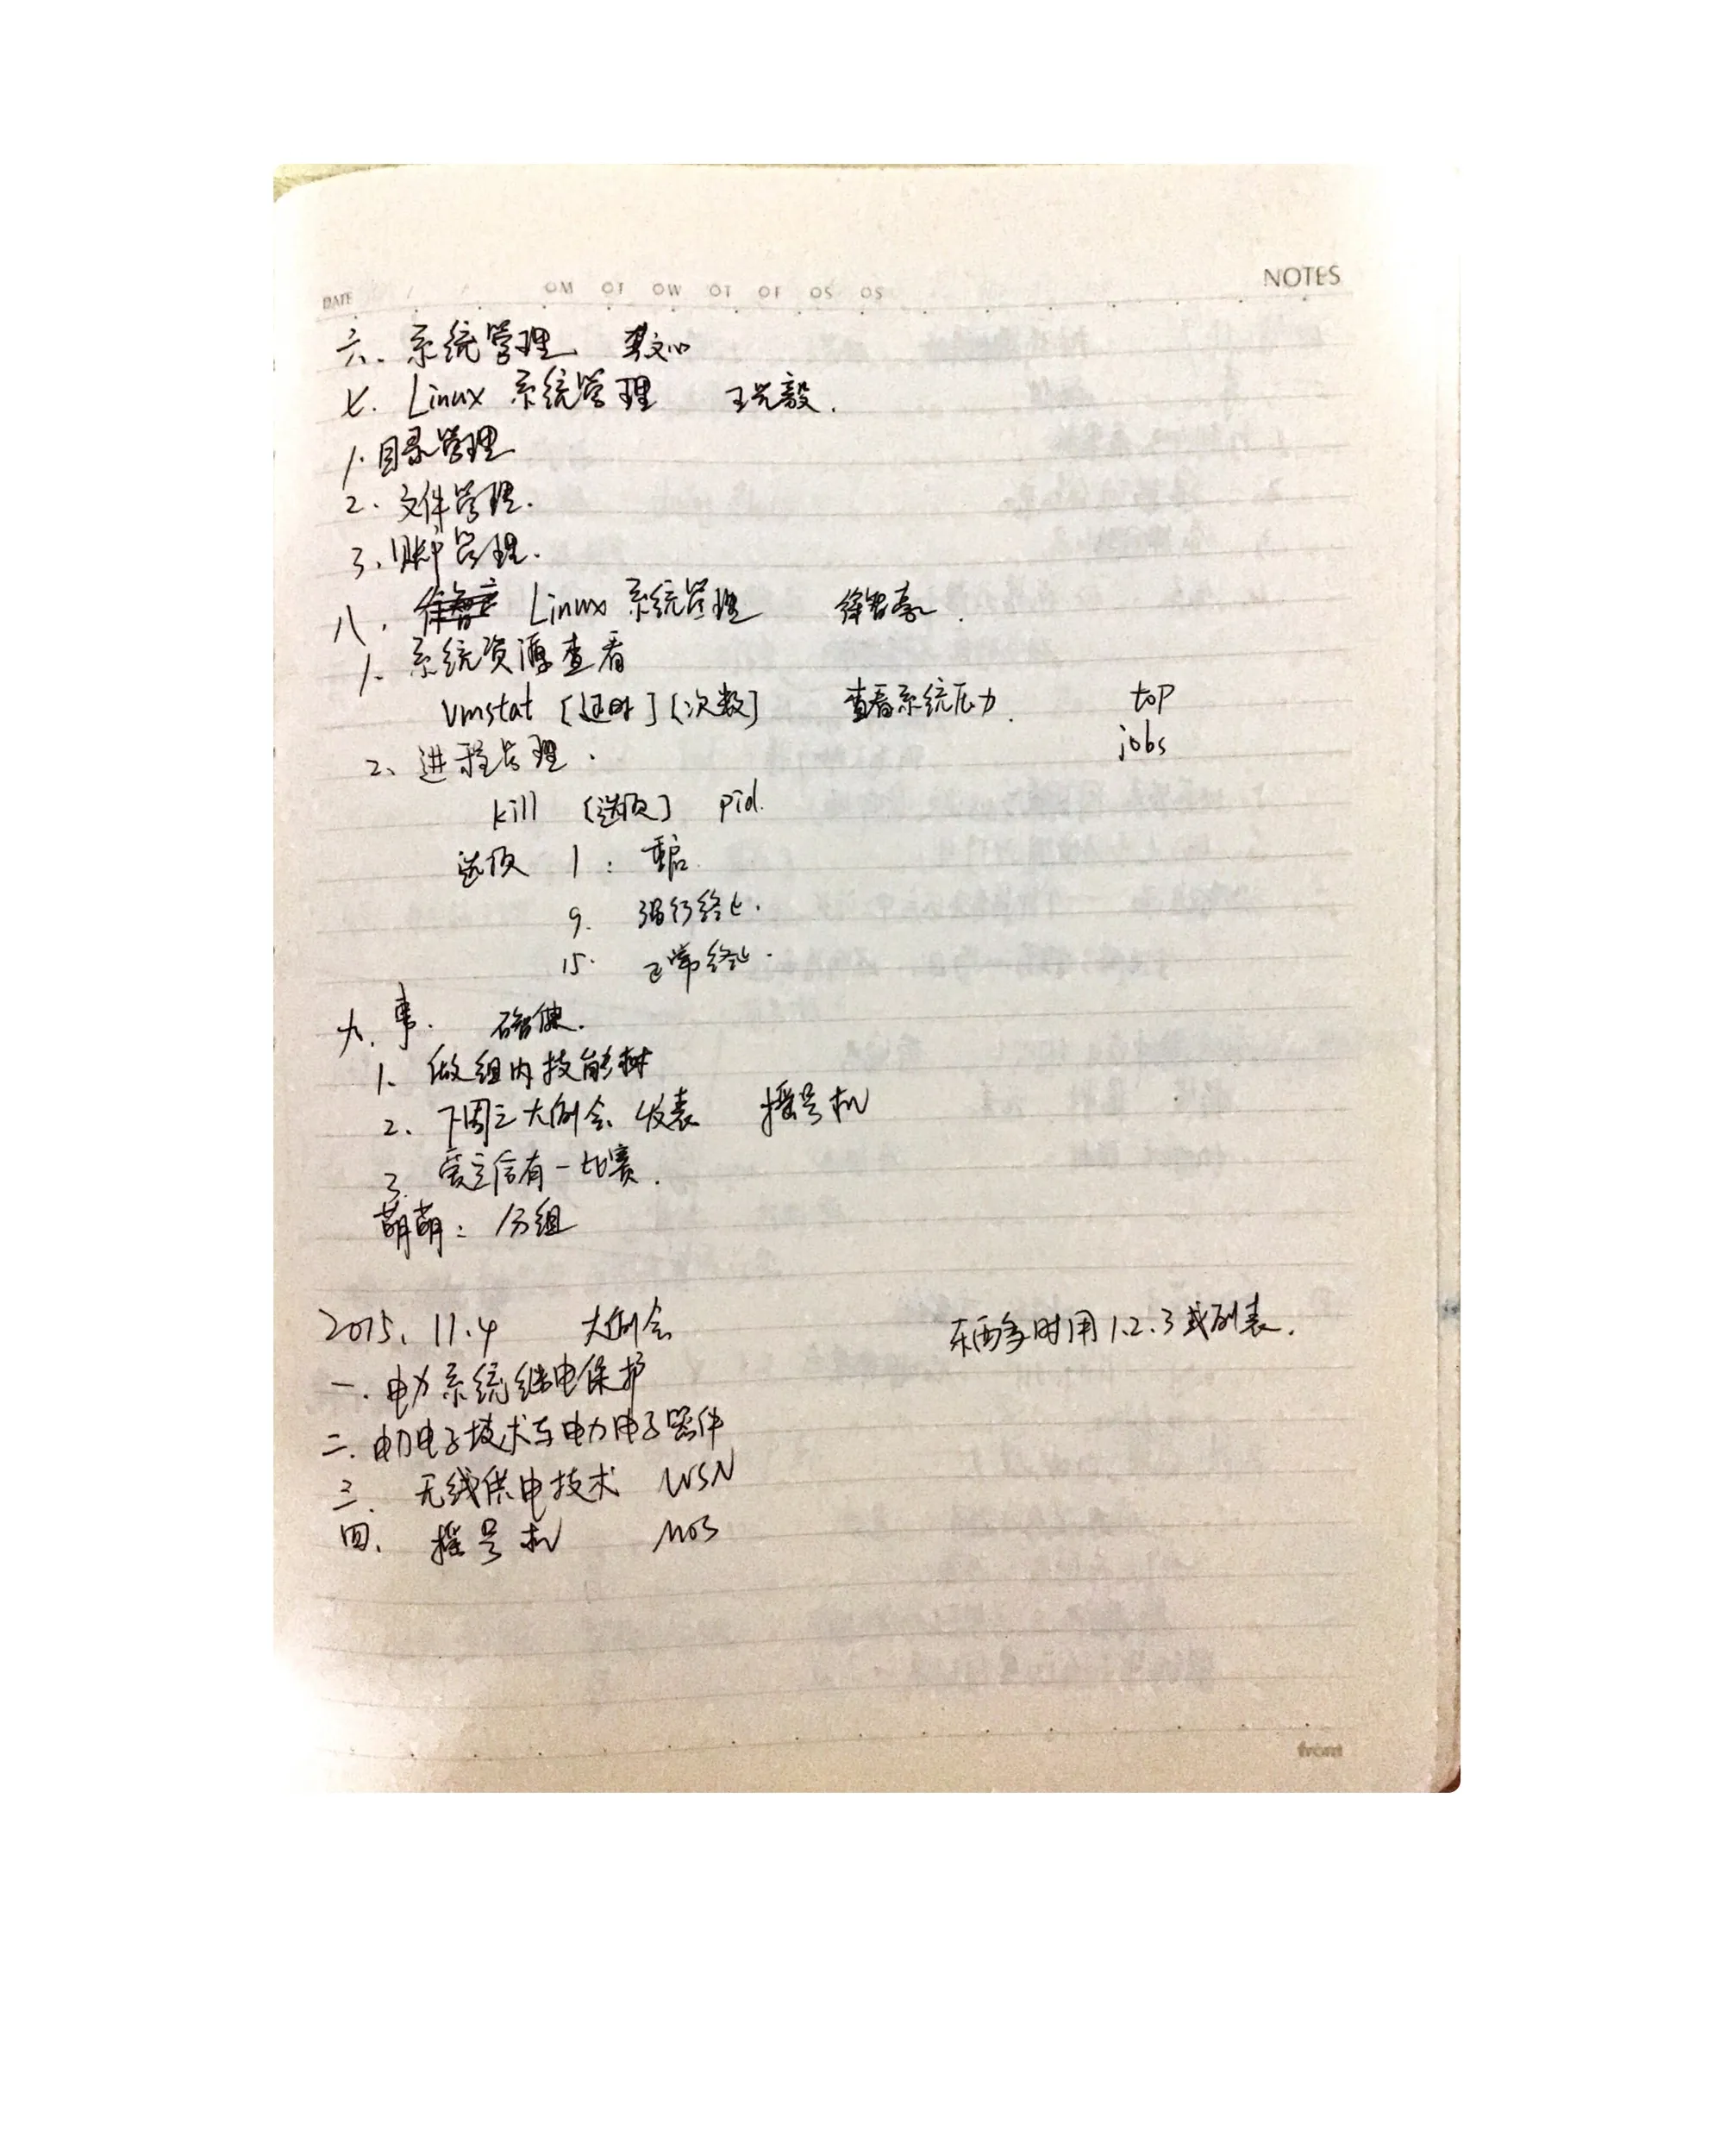 NOTES
DATE / / OM OT OW OT OF OS OS
六. 系统管理
七. Linux 系统管理 王光毅.
1. 目录管理
2. 文件管理.
3. 账户管理.
八. Linux 系统管理 徐智豪.
1. 系统资源查看
vmstat [延时] [次数] 查看系统压力. top
jobs
2、进程管理.
kill [选项] pid.
选项 1: 重启.
9. 强行终止.
15. 正常终止.
九. 事.
1. 做组内技能树
2、下周三大例会 发表 摇号机
3. 有一比赛.
萌萌: 分组
2015.11.4 大例会 东西多时用1.2.3或列表.
一. 电力系统继电保护
二. 电力电子技术与电力电子器件
三. 无线供电技术 WSN
四、摇号机 MOS
from